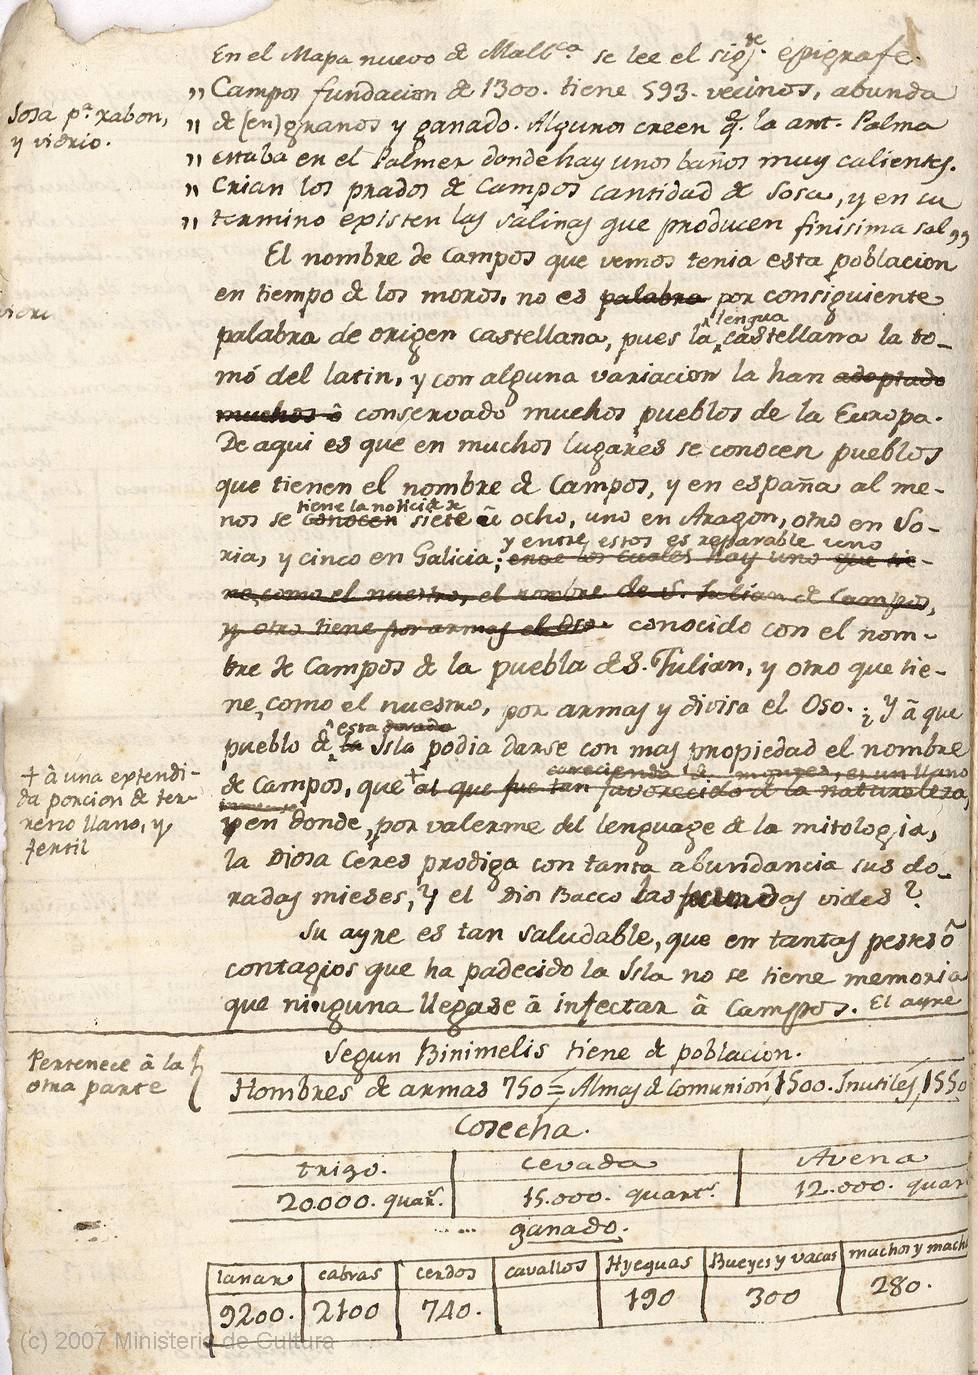 En el Mapa nuevo de Mallca. se lee el sigte. epigrafe.
Sosa pa. xabon,
y vidrio.
" Campos fundacion de 1300. tiene 593. vecinos, abunda
" de (en) granos y ganado. Algunos creen q. la ant. Palma
" estaba en el Palmer donde hay unos baños muy calientes.
" Crian los prados de Campos cantidad de Sosa, y en su
" termino existen las salinas que producen finisima sal "
El nombre de Campos que vemos tenia esta poblacion
en tiempo de los moros, no es palabra por consiguiente
palabra de origen castellana, pues la lengua castellana la to-
mó del latin, y con alguna variacion la han adoptado
muchos ô conservado muchos pueblos de la Europa.
De aqui es que en muchos lugares se conocen pueblos
que tienen el nombre de Campos, y en españa al me-
tiene la noticia de
nos se conocen siete û ocho, uno en Aragon, otro en So-
y entre estos es reparable uno
ria, y cinco en Galicia; entre los cuales hay uno que tie-
ne, como el nuestro, el nombre de S. Julian de Campos,
y otro tiene por armas el Oso. conocido con el nom-
bre de Campos de la puebla de S. Julian, y otro que tie-
ne, como el nuestro, por armas y divisa el Oso. ¿Y â que
esta
pueblo de la Isla podia darse con mas propiedad el nombre
careciendo de montes, es un llano
de Campos, que + al que fue tan favorecido de la naturaleza,
+ â una extendi-
da porcion de ter-
reno llano, y
fertil
y en donde, por valerme del lenguage de la mitologia,
la Diosa Ceres prodiga con tanta abundancia sus do-
radas mieses, y el Dios Bacco las fecundas vides?
Su ayre es tan saludable, que en tantas pestes ô
contagios que ha padecido la Isla no se tiene memoria
que ninguna llegase â infectar â Campos. El ayre
Pertenece â la
otra parte
Segun Binimelis tiene de poblacion.
Hombres de armas 750 = Almas de Comunion, 1500. Inutiles, 1550
Cosecha.
trigo. cevada Avena
20.000. quars. 15.000. quarts. 12.000. quar
ganado.
lanar cabras cerdos cavallos Hyeguas Bueyes y vacas machos y mach
9200. 2100 740. 190 300 280.
(c) 2007 Ministerio de Cultura